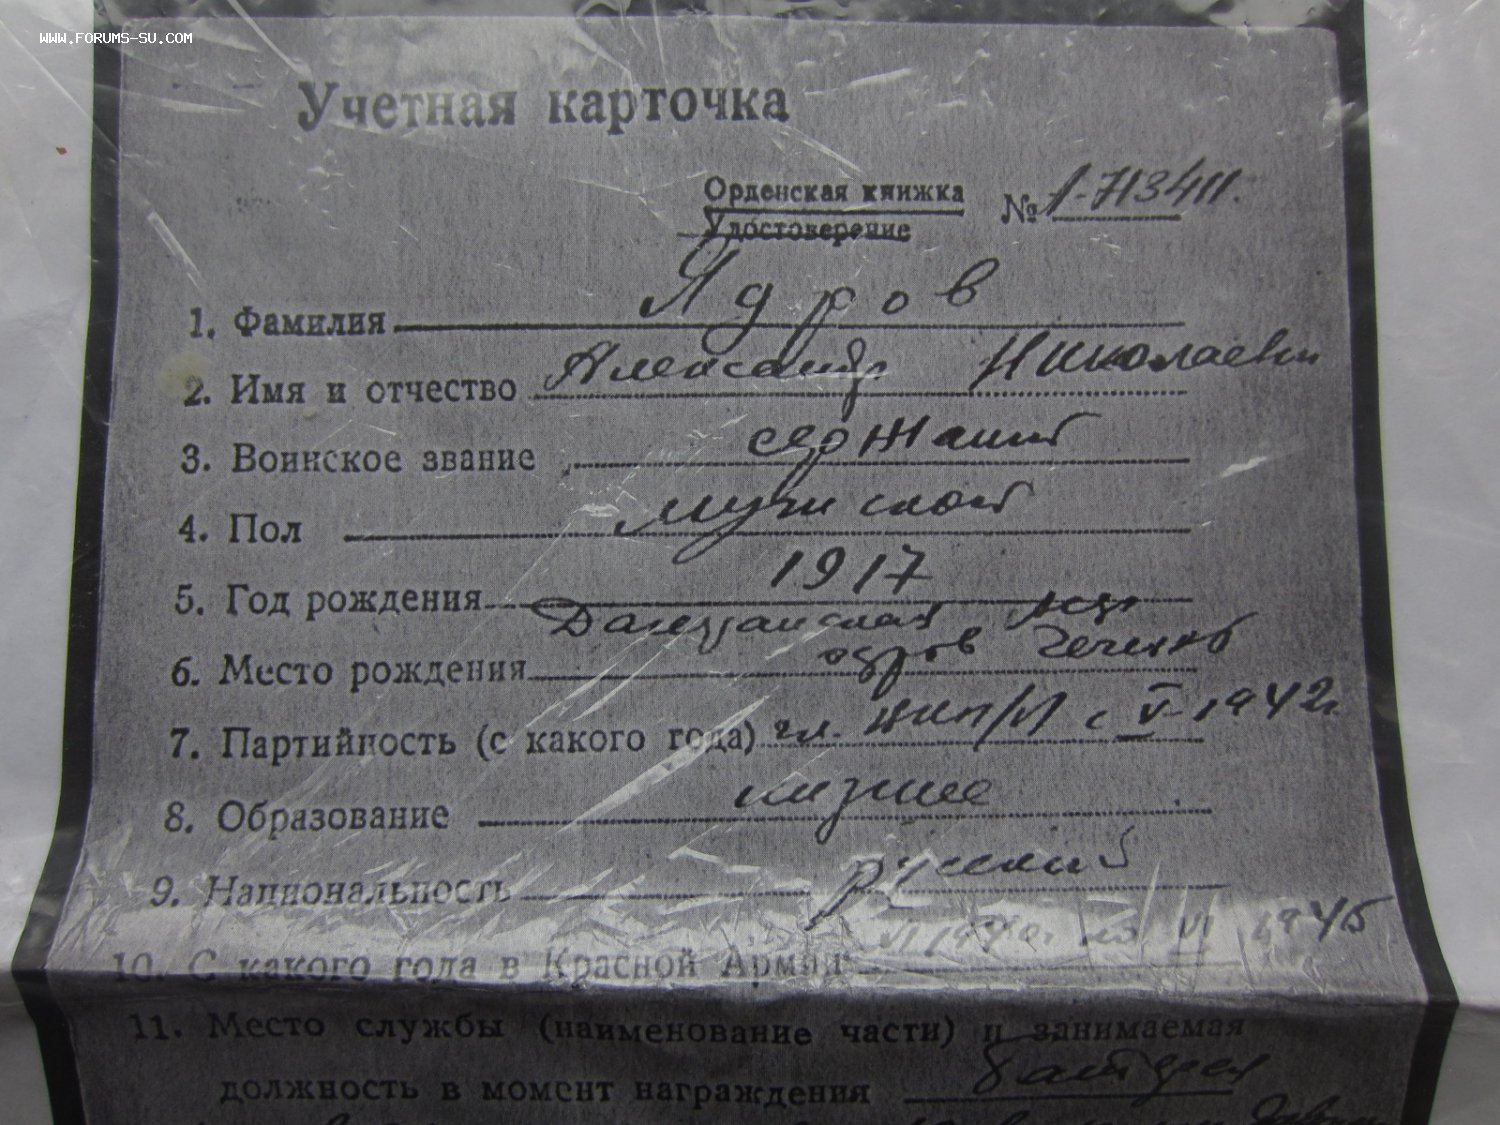 WWW.FORUMS-SU.COM
Учетная карточка
Орденская книжка № Л-713411.
Удостоверение
1. Фамилия Ядров
2. Имя и отчество Александр Николаевич
3. Воинское звание сержант
4. Пол мужской
5. Год рождения 1917
Дагестанская
6. Место рождения остров Чечень
7. Партийность (с какого года) чл. ВКП/б/ с V-1942г.
8. Образование низшее
9. Национальность русский
10. С какого года в Красной Армии VI 1940г. по VI 1945
11. Место службы (наименование части) и занимаемая
должность в момент награждения батарея